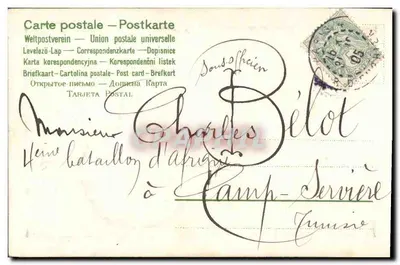 Carte postale – Postkarte
Weltpostverein – Union postale universelle
Levelező-Lap – Correspondenzkarte – Dopisnice
Karta korespondencyjna – Korespondenční lístek
Briefkaart – Cartolina postale – Post card – Brefkort
Открытое письмо – Дописна Карта
Tarjeta Postal
05
Sous officier
Monsieur Charles Bélot
4ème bataillon d'Afrique
à Camp-Servière
Tunisie